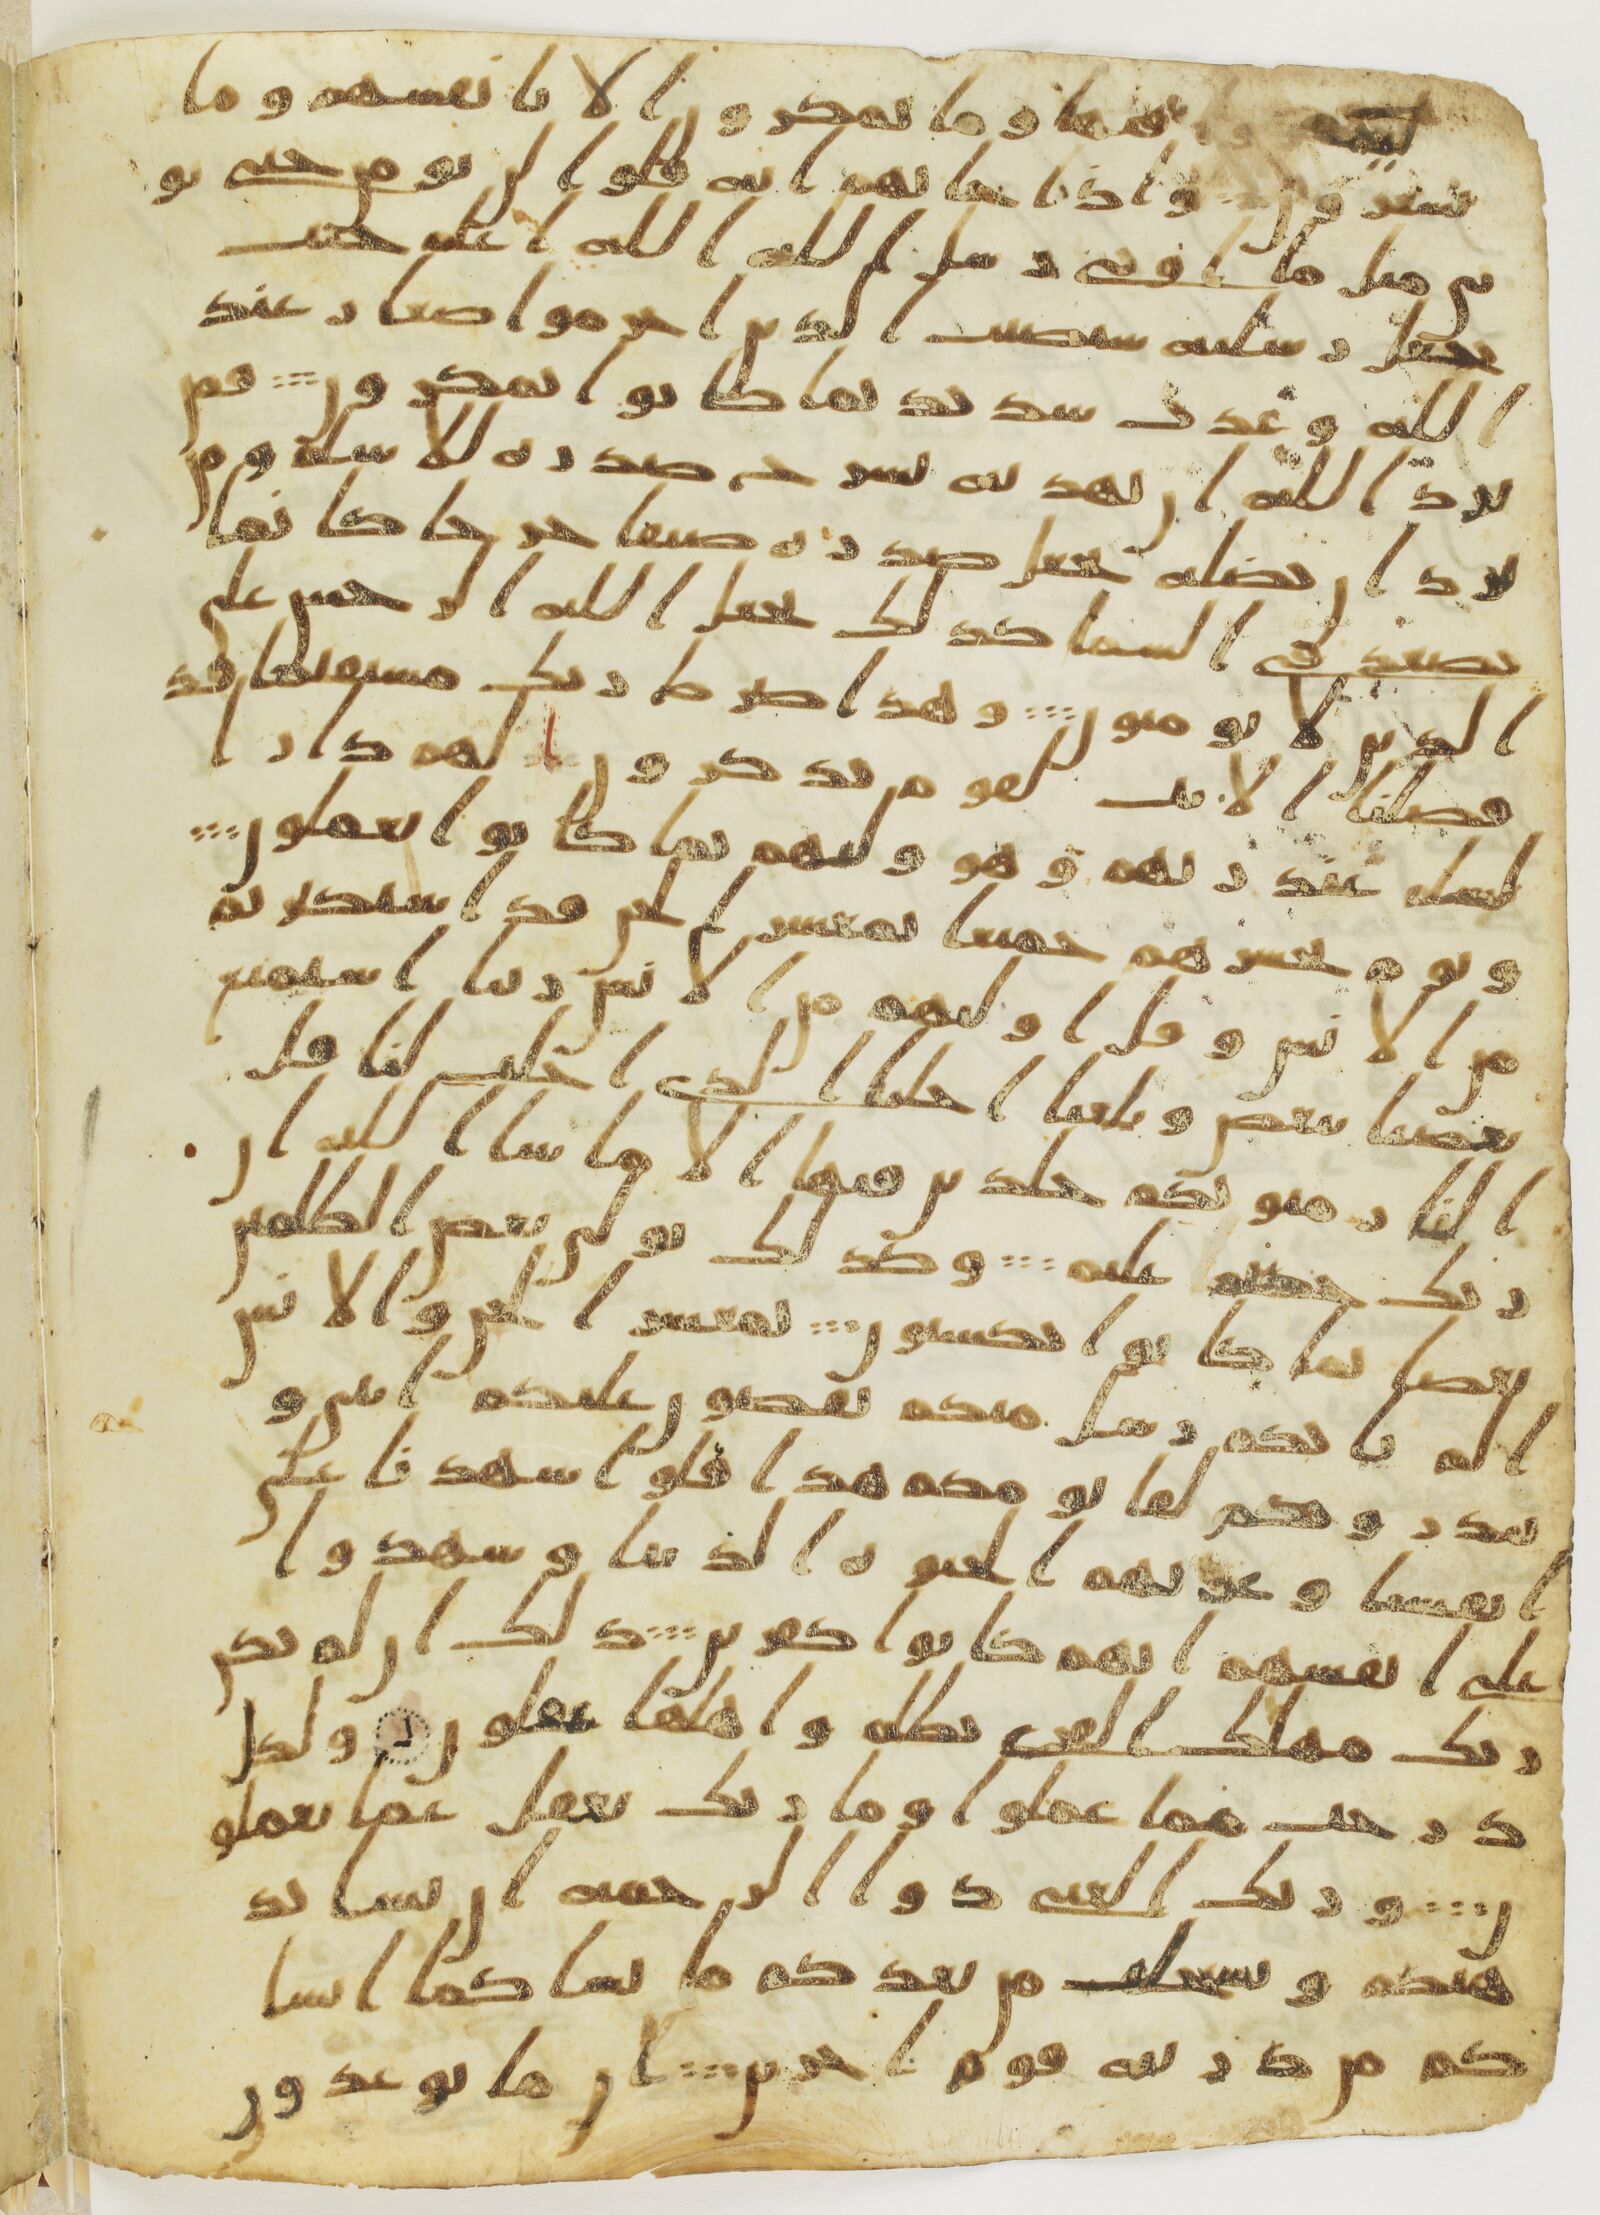 ليمكروا فيها وما يمكرون الا بانفسهم وما
يشعرون واذا جاتهم ايه قلوا لن نومن حتى نو
تى مثل ما اوتى رسل الله الله اعلم حيث
يجعل رسلته سيصيب الذين اجرموا صغار عند
الله وعذب شديد بما كانوا يمكرون فمن
يرد الله ان يهديه يشرح صدره للاسلم ومن
يرد ان يضله يجعل صدره ضيقا حرجا كانما
يصعد فى السما كذلك يجعل الله الرجس على
الذين لا يومنون وهذا صرط ربك مستقيما قد
فصلنا الايت لقوم يذكرون لهم دار ا
لسلم عند ربهم وهو وليهم بما كانوا يعملون
ويوم يحشرهم جميعا يمعشر الجن قد استكثرتم
من الانس وقل اوليهم من الانس ربنا استمتع
بعضنا ببعض وبلغنا اجلنا الذى اجلت لنا قل
النار مثويكم خلدين فيها الا ما شا الله ان
ربك حكيم عليم وكذلك نولى بعض الظلمين
بعضا بما كانوا يكسبون يمعشر الجن والانس
الم ياتكم رسل منكم يقصون عليكم ايتى و
ينذرونكم لقا يومكم هذا قلوا شهدنا على
انفسنا وغرتهم الحيوه الدنيا وشهدوا
على انفسهم انهم كانوا كفرين ذلك ان لم يكن
ربك مهلك القرى بظلم واهلها غفلون ولكل
درجت مما عملوا وما ربك بغفل عما يعملو
ن وربك الغنى ذوا الرحمه ان يشا يذ
هبكم ويستخلف من بعدكم ما يشا كما انشا
كم من ذريه قوم اخرين ان ما توعدون